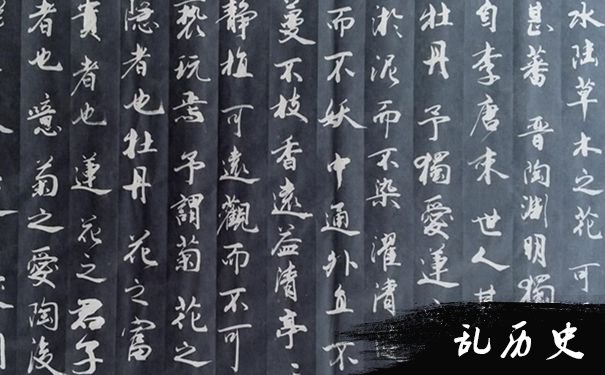 水陸草木之花可
甚蕃晋陶淵明獨
自李唐来世人甚
牡丹予獨愛蓮
淤泥而不染濯清
而不妖中通外直不
蔓不枝香遠益清亭
静植可遠觀而不可
褻玩焉予謂菊花之
隱者也牡丹花之富
貴者也蓮花之君子
者也噫菊之愛陶後
乱历史